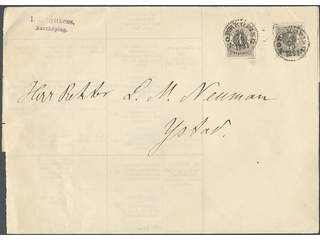 Norrköping.
NORRKÖPING
Herr Rektor L. M. Neuman
Ystad.